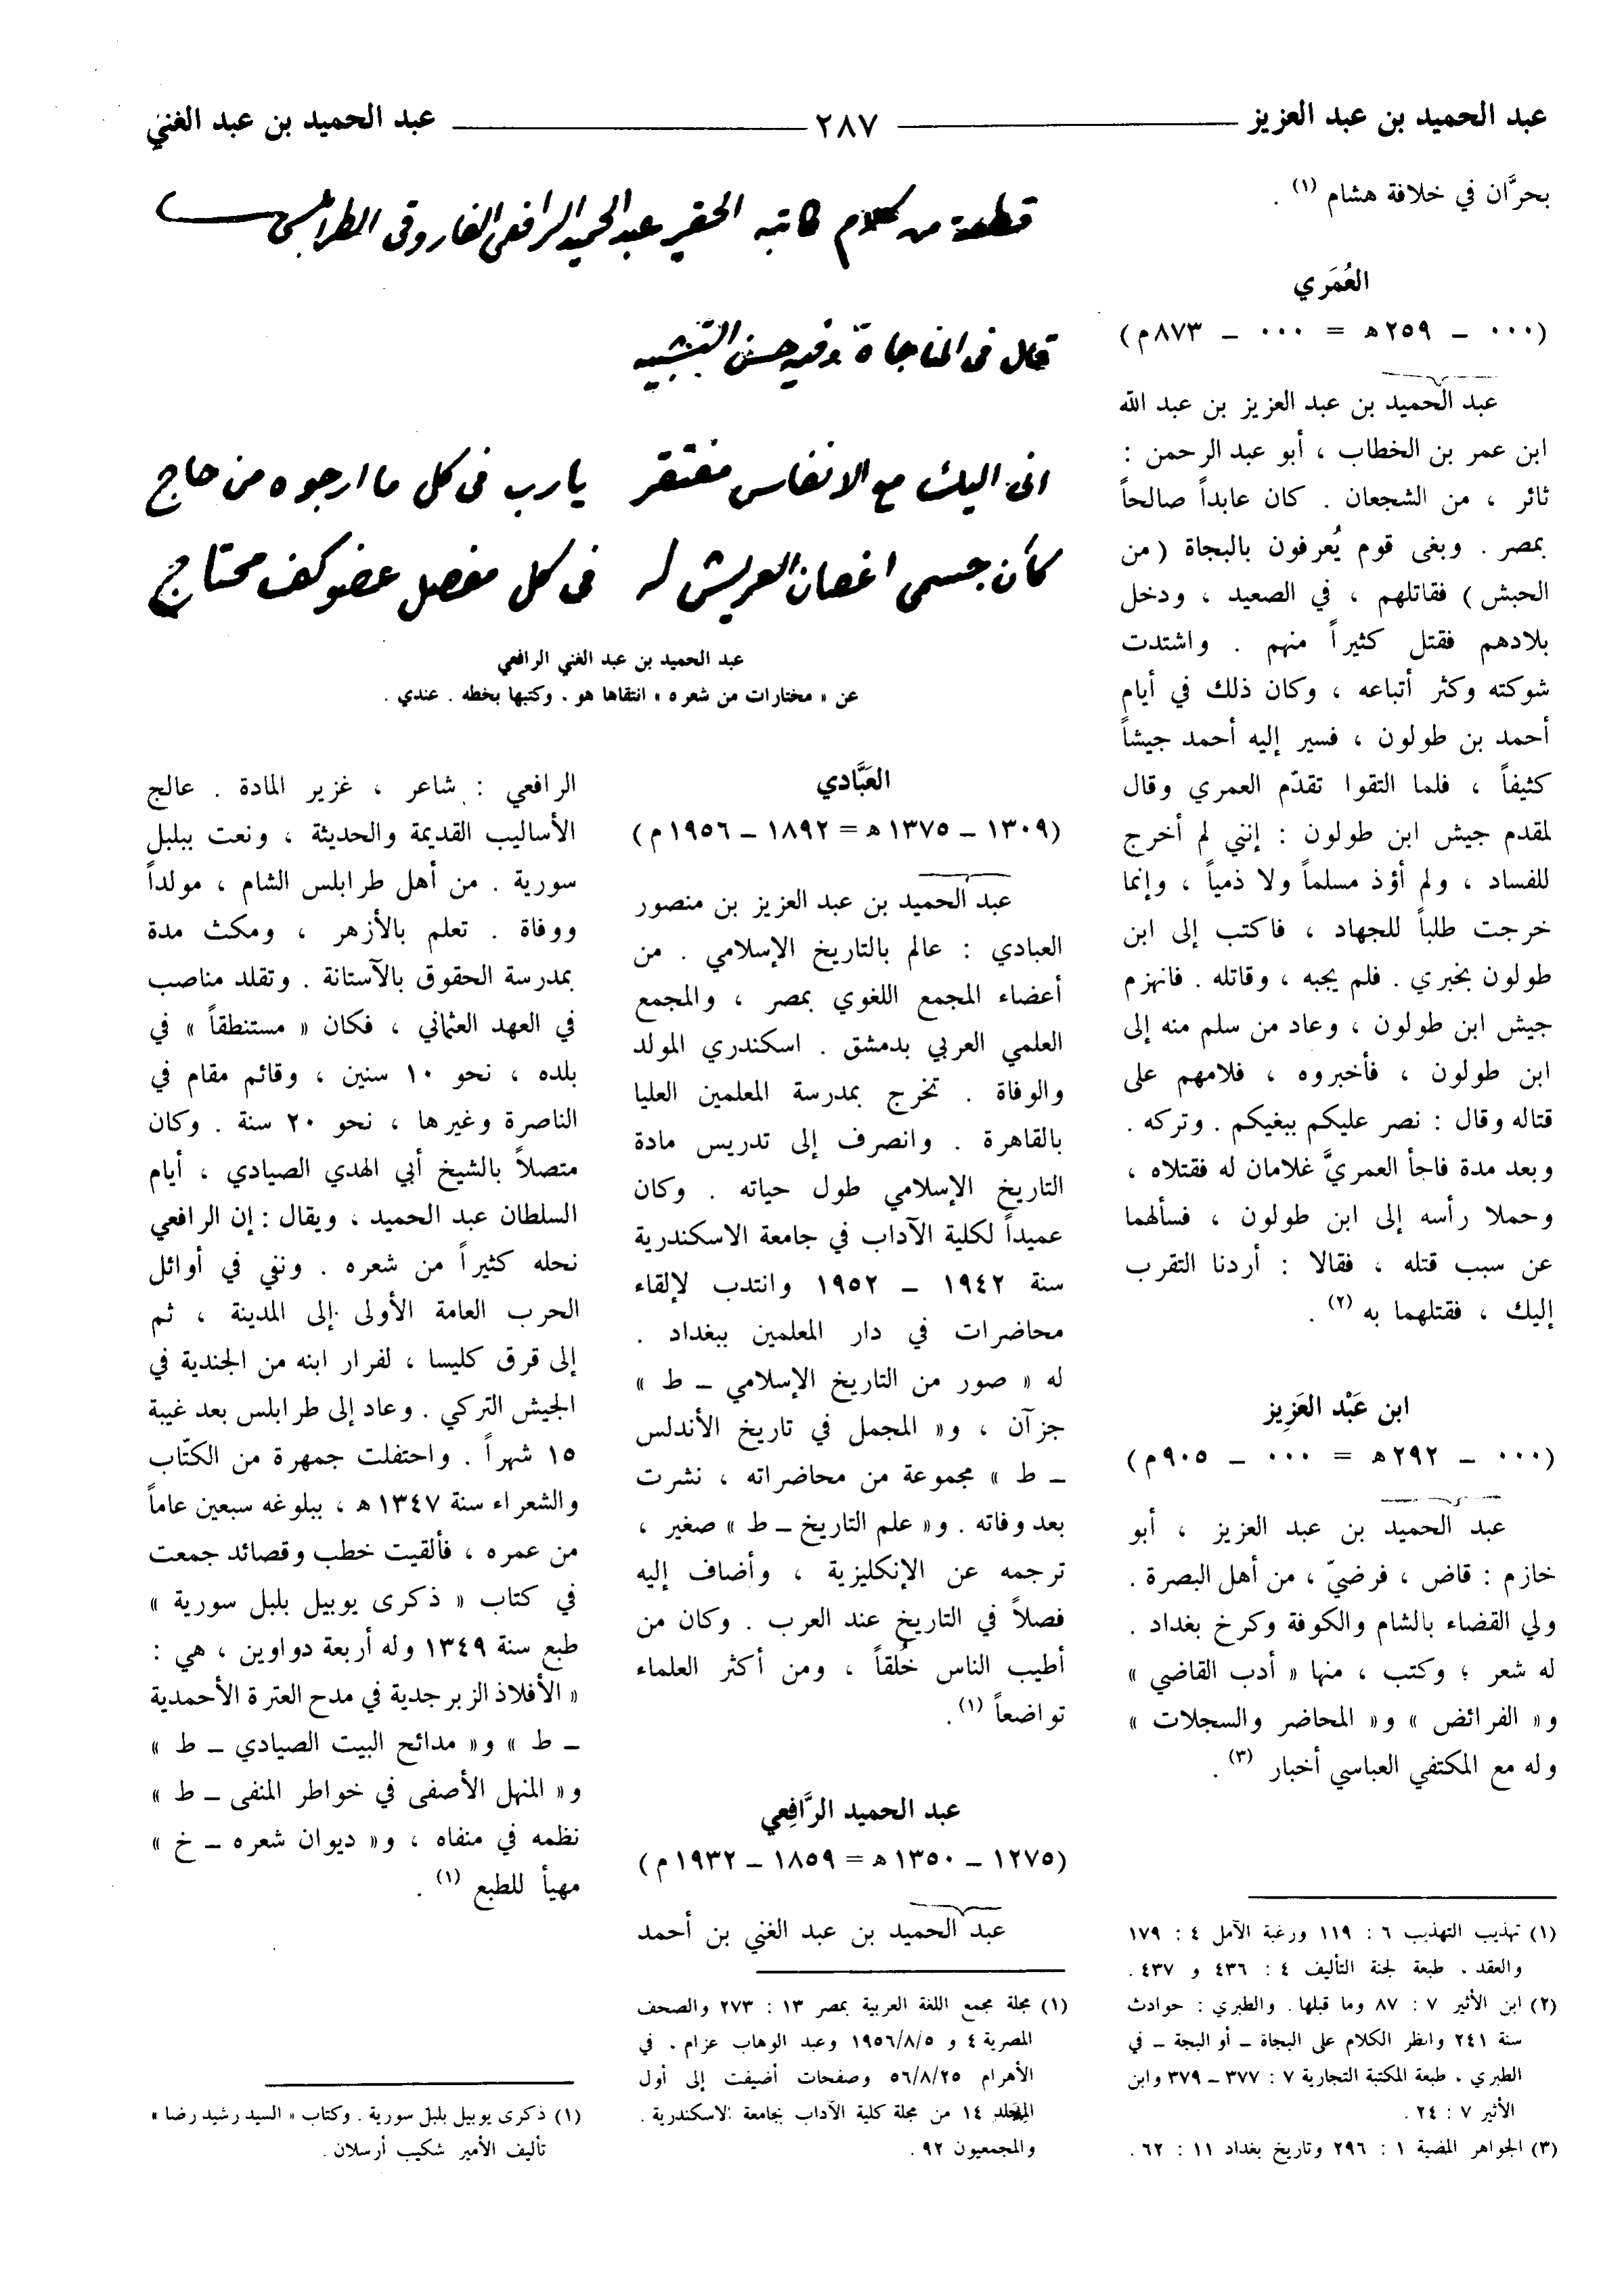 عبد الحميد بن عبد العزيز ــــ ٢٨٧ ــــ عبد الحميد بن عبد الغني
بحرَّان في خلافة هشام (١) .
العُمَري
(٠٠٠ ــ ٢٥٩ هـ = ٠٠٠ ــ ٨٧٣ م)
عبد الحميد بن عبد العزيز بن عبد الله
ابن عمر بن الخطاب ، أبو عبد الرحمن :
ثائر ، من الشجعان . كان عابداً صالحاً
بمصر . وبغى قوم يُعرفون بالبجاة (من
الحبش) فقاتلهم ، في الصعيد ، ودخل
بلادهم فقتل كثيراً منهم . واشتدت
شوكته وكثر أتباعه ، وكان ذلك في أيام
أحمد بن طولون ، فسير إليه أحمد جيشاً
كثيفاً ، فلما التقوا تقدّم العمري وقال
لمقدم جيش ابن طولون : إنني لم أخرج
للفساد ، ولم أؤذ مسلماً ولا ذمياً ، وإنما
خرجت طلباً للجهاد ، فاكتب إلى ابن
طولون بخبري . فلم يجبه ، وقاتله . فانهزم
جيش ابن طولون ، وعاد من سلم منه إلى
ابن طولون ، فأخبروه ، فلامهم على
قتاله وقال : نصر عليكم ببغيكم . وتركه .
وبعد مدة فاجأ العمريَّ غلامان له فقتلاه ،
وحملا رأسه إلى ابن طولون ، فسألهما
عن سبب قتله ، فقالا : أردنا التقرب
إليك ، فقتلهما به (٢) .
ابن عَبْد العَزِيز
(٠٠٠ ــ ٢٩٢ هـ = ٠٠٠ ــ ٩٠٥ م)
عبد الحميد بن عبد العزيز ، أبو
خازم : قاض ، فرضيّ ، من أهل البصرة .
ولي القضاء بالشام والكوفة وكرخ بغداد .
له شعر ؛ وكتب ، منها « أدب القاضي »
و« الفرائض » و« المحاضر والسجلات »
وله مع المكتفي العباسي أخبار (٣) .
(١) تهذيب التهذيب ٦ : ١١٩ ورغبة الآمل ٤ : ١٧٩
والعقد . طبعة لجنة التأليف ٤ : ٤٣٦ و ٤٣٧ .
(٢) ابن الأثير ٧ : ٨٧ وما قبلها . والطبري : حوادث
سنة ٢٤١ وانظر الكلام على البجاة ــ أو البجة ــ في
الطبري . طبعة المكتبة التجارية ٧ : ٣٧٧ ــ ٣٧٩ وابن
الأثير ٧ : ٢٤ .
(٣) الجواهر المضية ١ : ٢٩٦ وتاريخ بغداد ١١ : ٦٢ .
قطعة من كلام كاتبه الحقير عبد الحميد الرافعى الفاروقى الطرابلسى
قال فى المناجاة وفيه حسن التشبيه
انى اليك مع الانفاس مفتقر يارب فى كل ما ارجوه من حاج
كأن جسمى اغصان العريش له فى كل مفصل عضو كف محتاج
عبد الحميد بن عبد الغني الرافعي
عن « مختارات من شعره » انتقاها هو . وكتبها بخطه . عندي .
العَبَّادي
(١٣٠٩ ــ ١٣٧٥ هـ = ١٨٩٢ ــ ١٩٥٦ م)
عبد الحميد بن عبد العزيز بن منصور
العبادي : عالم بالتاريخ الإسلامي . من
أعضاء المجمع اللغوي بمصر ، والمجمع
العلمي العربي بدمشق . اسكندري المولد
والوفاة . تخرج بمدرسة المعلمين العليا
بالقاهرة . وانصرف إلى تدريس مادة
التاريخ الإسلامي طول حياته . وكان
عميداً لكلية الآداب في جامعة الاسكندرية
سنة ١٩٤٢ ــ ١٩٥٢ وانتدب لإلقاء
محاضرات في دار المعلمين ببغداد .
له « صور من التاريخ الإسلامي ــ ط »
جزآن ، و« المجمل في تاريخ الأندلس
ــ ط » مجموعة من محاضراته ، نشرت
بعد وفاته . و« علم التاريخ ــ ط » صغير ،
ترجمه عن الإنكليزية ، وأضاف إليه
فصلاً في التاريخ عند العرب . وكان من
أطيب الناس خُلقاً ، ومن أكثر العلماء
تواضعاً (١) .
عبد الحميد الرَّافِعي
(١٢٧٥ ــ ١٣٥٠ هـ = ١٨٥٩ ــ ١٩٣٢ م)
عبد الحميد بن عبد الغني بن أحمد
(١) مجلة مجمع اللغة العربية بمصر ١٣ : ٢٧٣ والصحف
المصرية ٤ و ١٩٥٦/٨/٥ وعبد الوهاب عزام . في
الأهرام ٥٦/٨/٢٥ وصفحات أضيفت إلى أول
المجلد ١٤ من مجلة كلية الآداب بجامعة الاسكندرية .
والمجمعيون ٩٢ .
الرافعي : شاعر ، غزير المادة . عالج
الأساليب القديمة والحديثة ، ونعت ببلبل
سورية . من أهل طرابلس الشام ، مولداً
ووفاة . تعلم بالأزهر ، ومكث مدة
بمدرسة الحقوق بالآستانة . وتقلد مناصب
في العهد العثماني ، فكان « مستنطقاً » في
بلده ، نحو ١٠ سنين ، وقائم مقام في
الناصرة وغيرها ، نحو ٢٠ سنة . وكان
متصلاً بالشيخ أبي الهدي الصيادي ، أيام
السلطان عبد الحميد ، ويقال : إن الرافعي
نحله كثيراً من شعره . ونفي في أوائل
الحرب العامة الأولى إلى المدينة ، ثم
إلى قرق كليسا ، لفرار ابنه من الجندية في
الجيش التركي . وعاد إلى طرابلس بعد غيبة
١٥ شهراً . واحتفلت جمهرة من الكتّاب
والشعراء سنة ١٣٤٧ هـ ، ببلوغه سبعين عاماً
من عمره ، فألقيت خطب وقصائد جمعت
في كتاب « ذكرى يوبيل بلبل سورية »
طبع سنة ١٣٤٩ وله أربعة دواوين ، هي :
« الأفلاذ الزبرجدية في مدح العترة الأحمدية
ــ ط » و« مدائح البيت الصيادي ــ ط »
و« المنهل الأصفى في خواطر المنفى ــ ط »
نظمه في منفاه ، و« ديوان شعره ــ خ »
مهيأ للطبع (١) .
(١) ذكرى يوبيل بلبل سورية . وكتاب « السيد رشيد رضا »
تأليف الأمير شكيب أرسلان .